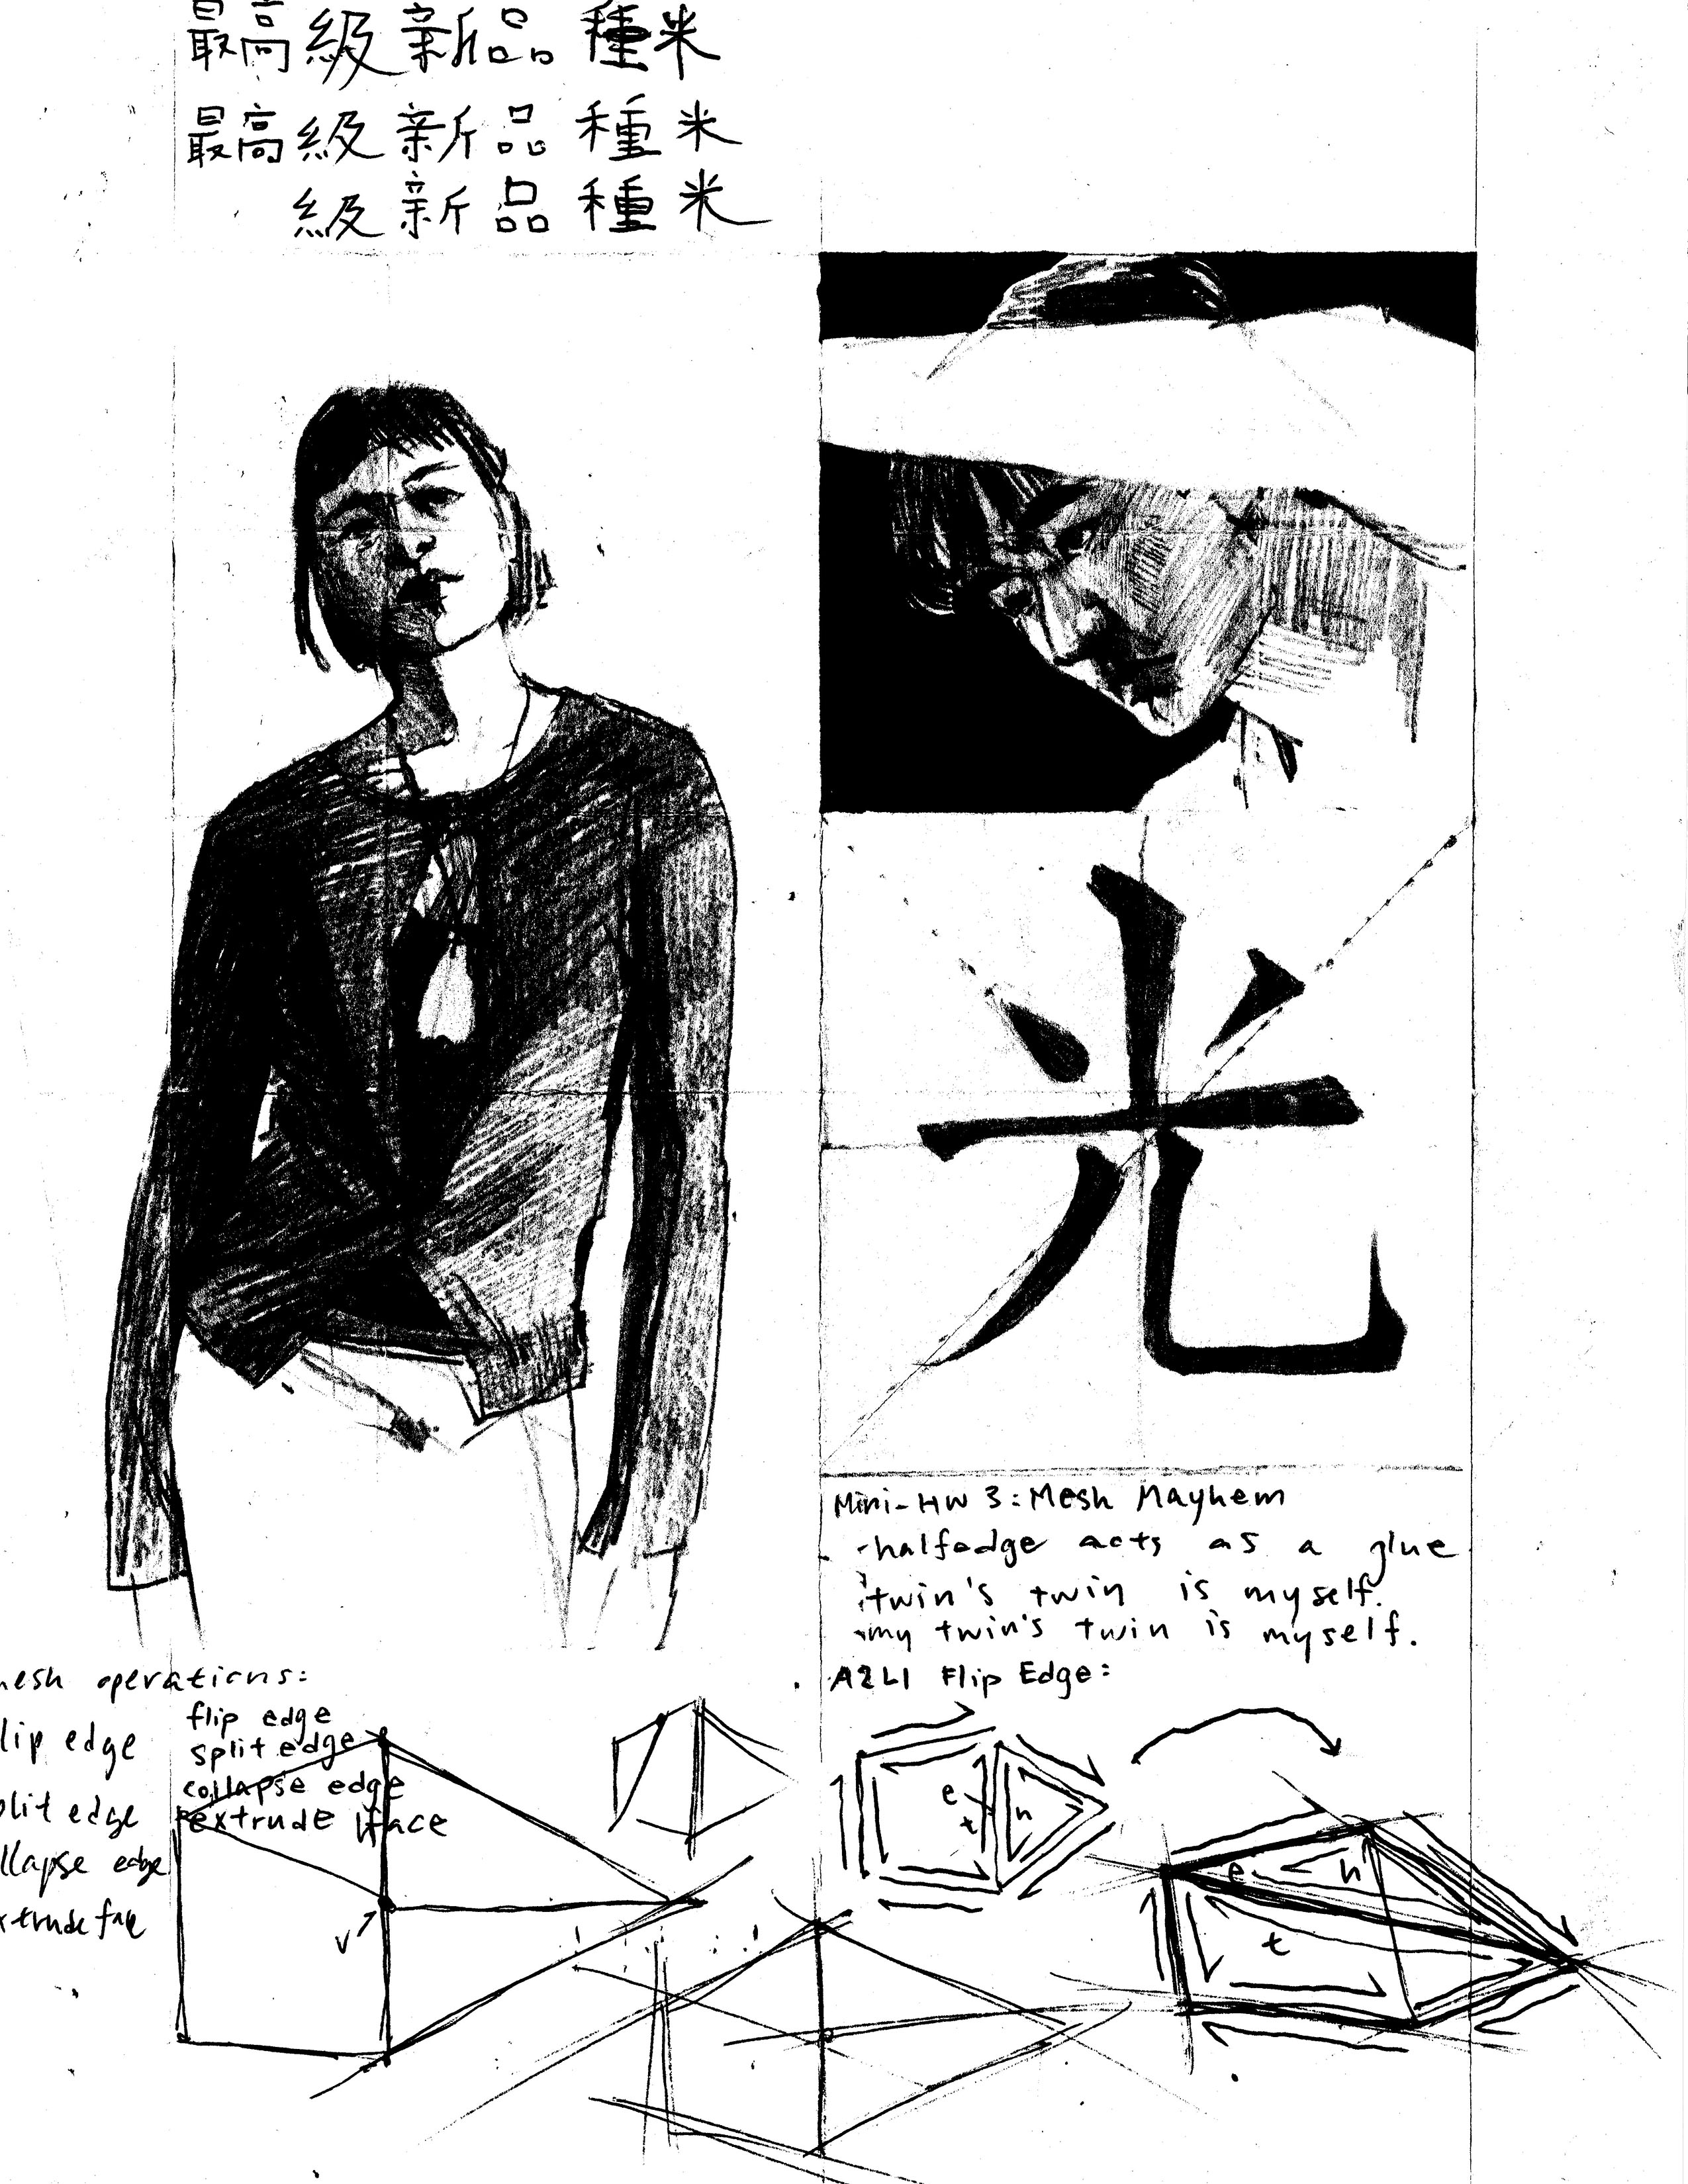 最高級新品種米
最高級新品種米
級新品種米
光
Mini-HW 3: Mesh Mayhem
-halfedge acts as a glue
twin's twin is myself.
my twin's twin is myself.
mesh operations:
flip edge
split edge
collapse edge
extrude face
lip edge
plit edge
llapse edge
xtrude face
v
A2L1 Flip Edge:
e
t
h
e
h
t